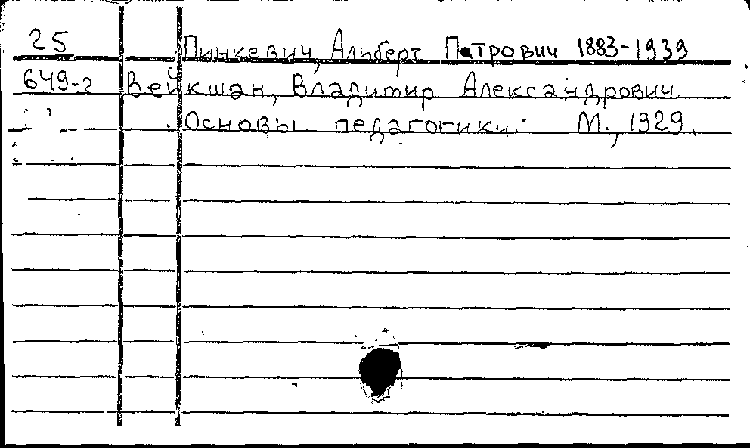 25 Пинкевич, Альберт Петрович 1883-1939
649-2 Вейкшан, Владимир Александрович
Основы педагогики. М., 1929.